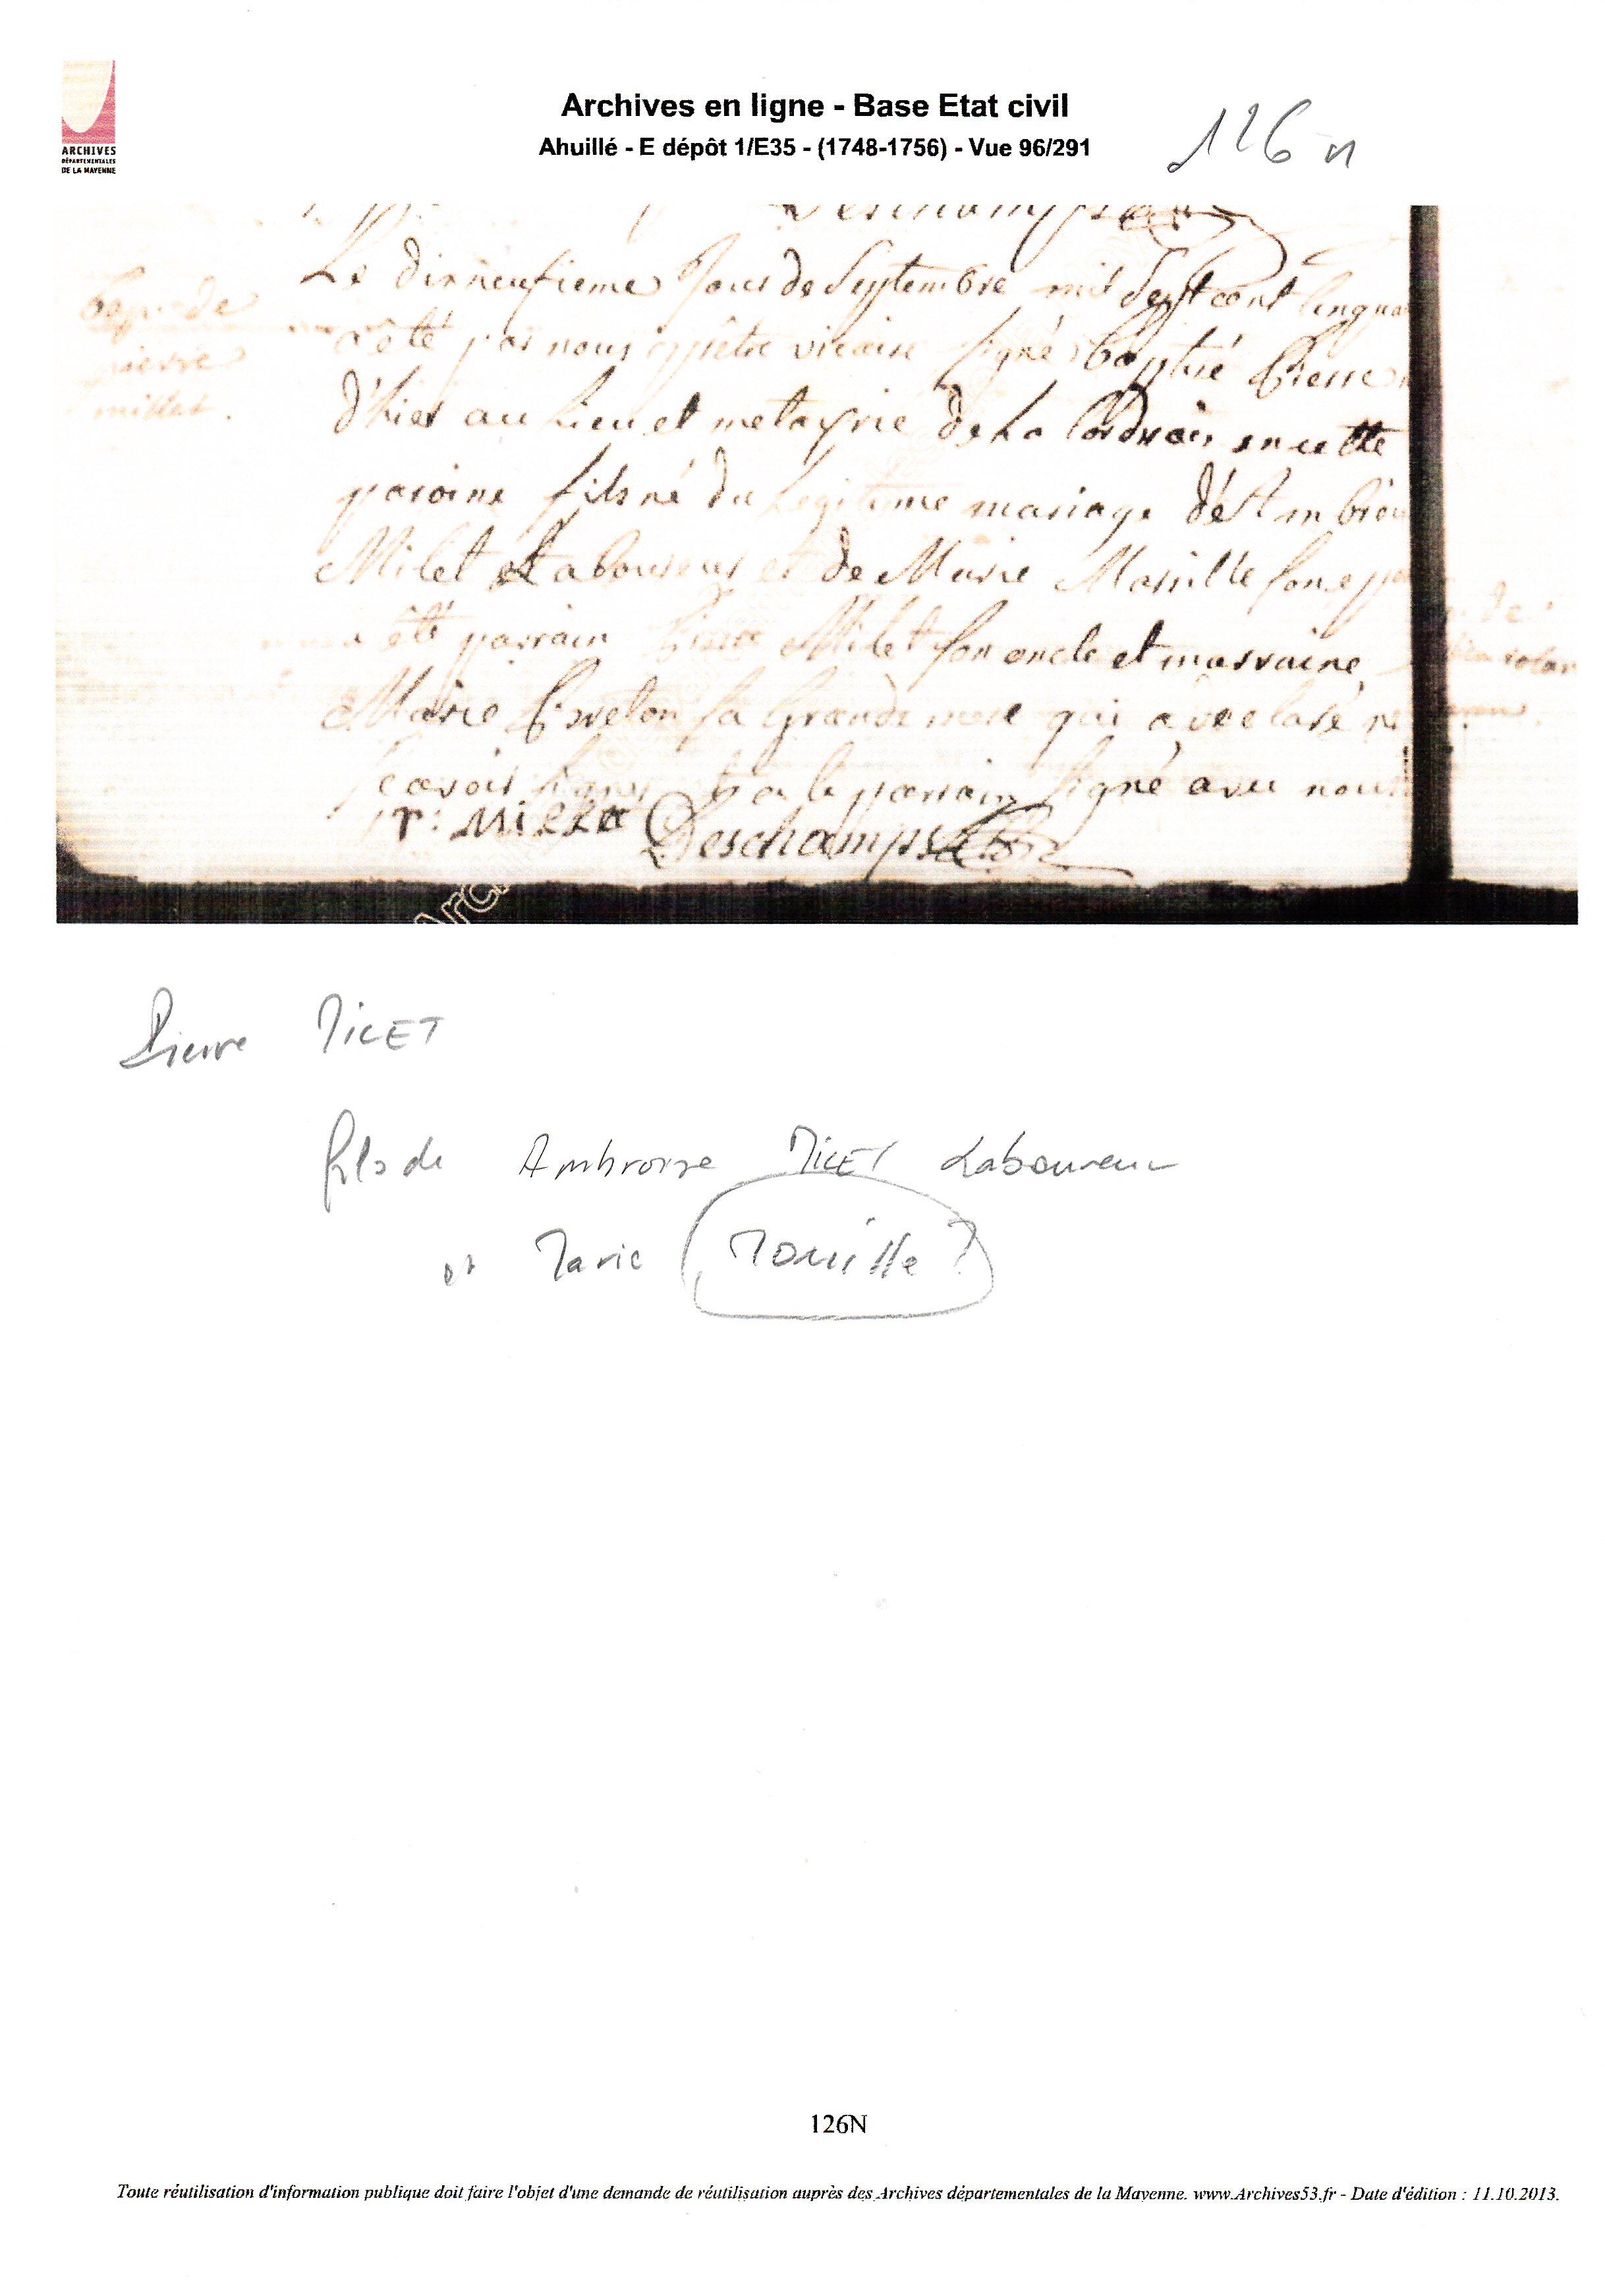 ARCHIVES
DÉPARTEMENTALES
DE LA MAYENNE
Archives en ligne - Base Etat civil
Ahuillé - E dépôt 1/E35 - (1748-1756) - Vue 96/291
126 n
Deschamps
bap. de
pierre
millet.
Le dixneufieme Jour de Septembre mil Sept cent cinqua
a été par nous prêtre vicaire signé baptisé Pierre n
d'hier au lieu et metayrie de La en cette
paroine fils né du Legitime mariage d'Ambroi
Milet Laboureur et de Marie son epou
a été parrain Pierre Milet son oncle et marraine
Marie Breton sa Grande mere qui a declaré ne
scavoir signer et a le parrain signé avec nous
P: Millet Deschamps
Pierre MILET
fils de Ambroise MILET Laboureur
et Marie Mouille ?
126N
Toute réutilisation d'information publique doit faire l'objet d'une demande de réutilisation auprès des Archives départementales de la Mayenne. www.Archives53.fr - Date d'édition : 11.10.2013.